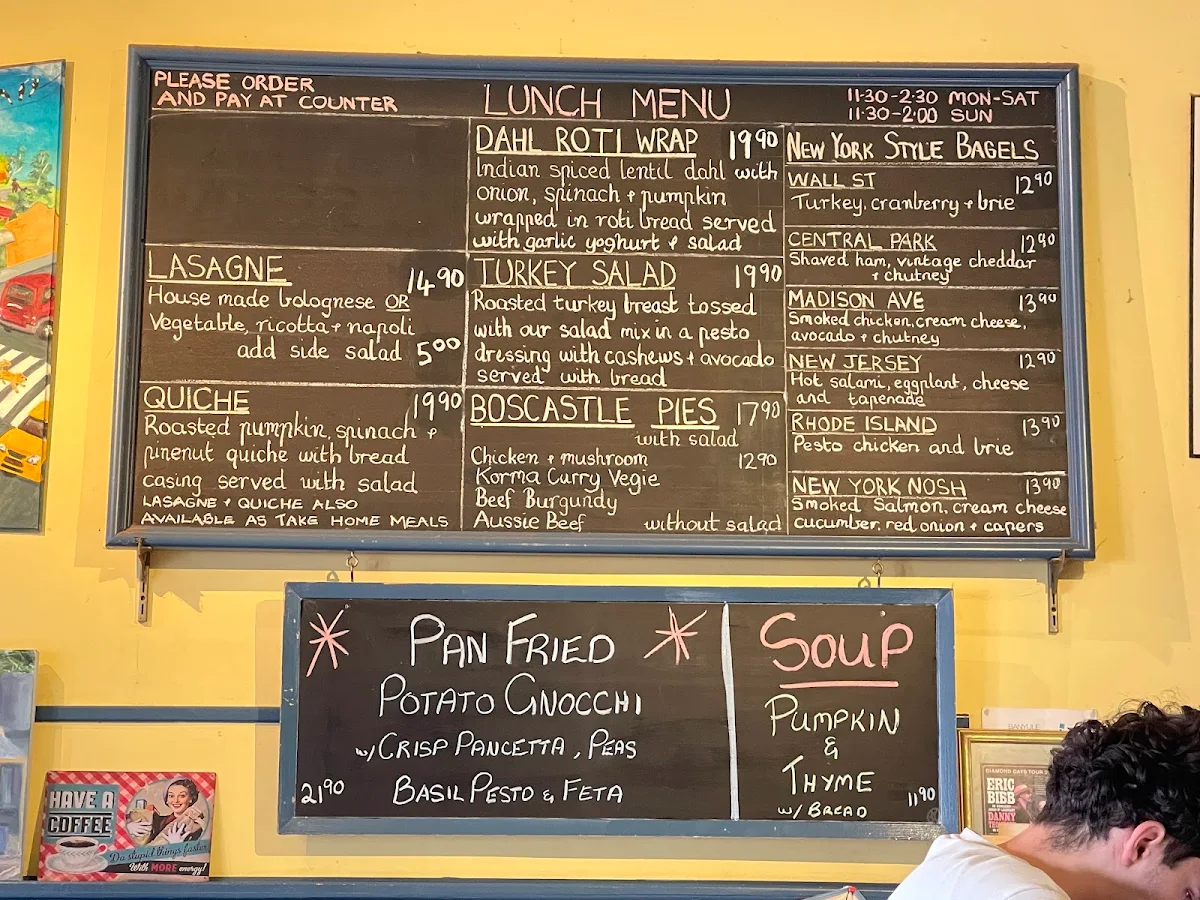 PLEASE ORDER
AND PAY AT COUNTER
LUNCH MENU
11·30-2·30 MON-SAT
11·30-2·00 SUN
LASAGNE 14.90
House made bolognese OR
Vegetable, ricotta + napoli
add side salad 5⁰⁰
QUICHE 19⁹⁰
Roasted pumpkin, spinach +
pinenut quiche with bread
casing served with salad
LASAGNE + QUICHE ALSO
AVAILABLE AS TAKE HOME MEALS
DAHL ROTI WRAP 19⁹⁰
Indian spiced lentil dahl with
onion, spinach + pumpkin
wrapped in roti bread served
with garlic yoghurt + salad
TURKEY SALAD 19⁹⁰
Roasted turkey breast tossed
with our salad mix in a pesto
dressing with cashews + avocado
served with bread
BOSCASTLE PIES 17⁹⁰
with salad
Chicken + mushroom 12⁹⁰
Korma Curry Vegie
Beef Burgundy
Aussie Beef without salad
NEW YORK STYLE BAGELS
WALL ST 12⁹⁰
Turkey, cranberry + brie
CENTRAL PARK 12⁹⁰
Shaved ham, vintage cheddar
+ chutney
MADISON AVE 13⁹⁰
Smoked chicken, cream cheese,
avocado + chutney
NEW JERSEY 12⁹⁰
Hot salami, eggplant, cheese
and tapenade
RHODE ISLAND 13⁹⁰
Pesto chicken and brie
NEW YORK NOSH 13⁹⁰
Smoked Salmon, cream cheese
cucumber, red onion + capers
PAN FRIED
POTATO GNOCCHI
w/ CRISP PANCETTA, PEAS
21⁹⁰ BASIL PESTO & FETA
SOUP
PUMPKIN
&
THYME
w/ BREAD 11⁹⁰
HAVE A
COFFEE
Do stupid things faster
With MORE energy!
BANYULE
DIAMOND DAYS TOUR
ERIC
BIBB
DANNY